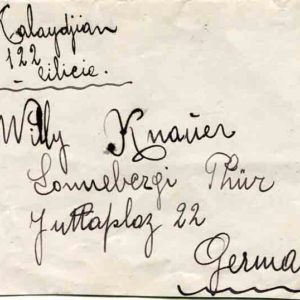 Kalaydjian
122
Cilicie.
Willy Knauer
Sonnebergi Thür
Juttaplaz 22
Germa